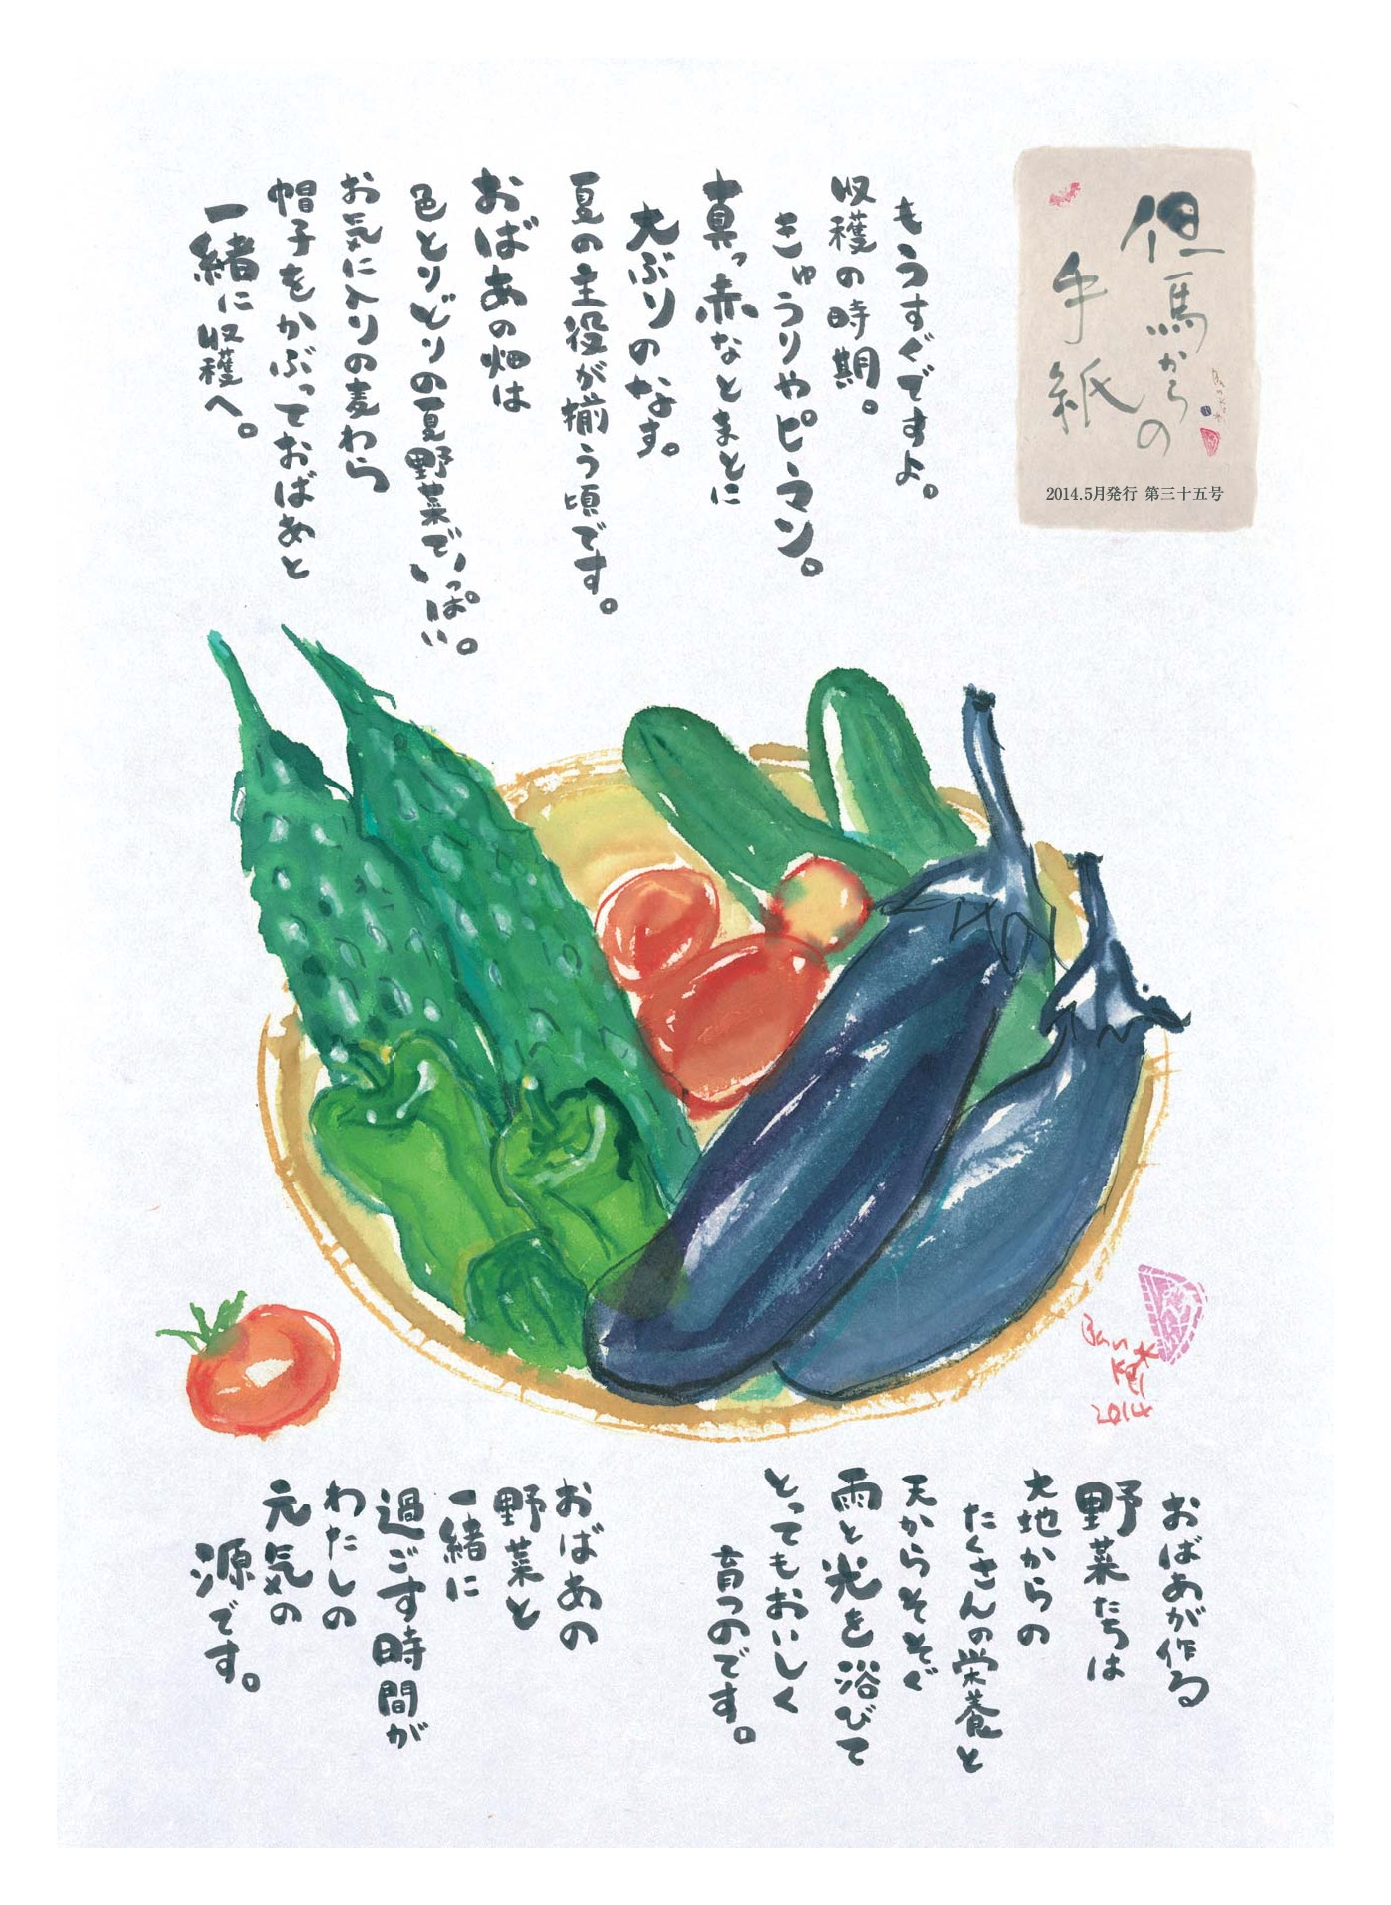 但馬からの
手紙
2014.5月発行 第三十五号
もうすぐですよ。
収穫の時期。
きゅうりやピーマン。
真っ赤なとまとに
大ぶりのなす。
夏の主役が揃う頃です。
おばあの畑は
色とりどりの夏野菜でいっぱい。
お気に入りの麦わら
帽子をかぶっておばあと
一緒に収穫へ。
Ban
Kei
2014
おばあが作る
野菜たちは
大地からの
たくさんの栄養と
天からそそぐ
雨と光を浴びて
とってもおいしく
育つのです。
おばあの
野菜と
一緒に
過ごす時間が
わたしの
元気の
源です。